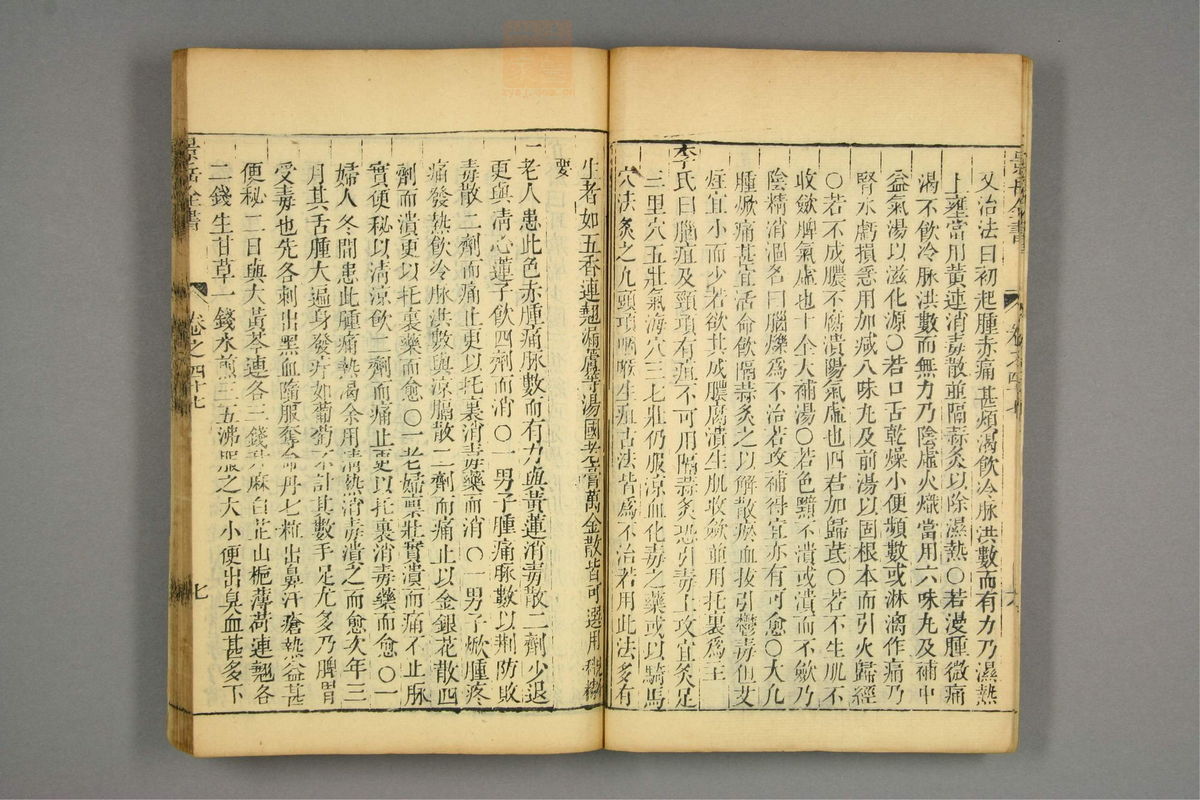 又治法曰初起腫赤痛甚煩渴飲冷脉洪數而有力乃濕熱
上壅當用黃連消毒散並隔蒜灸以除濕熱〇若漫腫微痛
渴不飲冷脉洪數而無力乃陰虛火熾當用六味丸及補中
益氣湯以滋化源〇若口舌乾燥小便頻數或淋漓作痛乃
腎水虧損急用加減八味丸及前湯以固根本而引火歸經
〇若不成膿不腐潰陽氣虛也四君加歸芪〇若不生肌不
收斂脾氣虛也十全大補湯〇若色黯不潰或潰而不斂乃
陰精消涸名曰腦爍為不治若攻補得宜亦有可愈〇大凡
腫焮痛甚宜活命飲隔蒜灸之以解散瘀血拔引鬱毒但艾
炷宜小而少若欲其成膿腐潰生肌收斂並用托裏為主
李氏曰腦疽及頸項有疽不可用隔蒜灸恐引毒上攻宜灸足
三里穴五壯氣海穴三七壯仍服涼血化毒之藥或以騎馬
穴法灸之凡頭項咽喉生疽古法皆為不治若用此法多有
生者如五香連翹漏蘆等湯國老膏萬金散皆可選用
要
一老人患此色赤腫痛脉數而有力與黃連消毒散二劑少退
更與清心蓮子飲四劑而消〇一男子腫痛脉數以荆防敗
毒散二劑而痛止更以托裏消毒藥而消〇一男子焮腫疼
痛發熱飲冷脉洪數與涼膈散二劑而痛止以金銀花散四
劑而潰更以托裏藥而愈〇一老婦禀壯實潰而痛不止脉
實便秘以清涼飲二劑而痛止更以托裏消毒藥而愈〇一
婦人冬間患此腫痛熱渴余用清熱消毒潰之而愈次年三
月其舌腫大遍身發疔如葡萄不計其數手足尤多乃脾胃
受毒也先各刺出黑血隨服奪命丹七粒出鼻汗瘡熱益甚
便秘二日與大黃芩連各三錢升麻白芷山梔薄荷連翹各
二錢生甘草一錢水煎三五沸服之大小便出臭血甚多下
景岳全書
卷之四十七
七